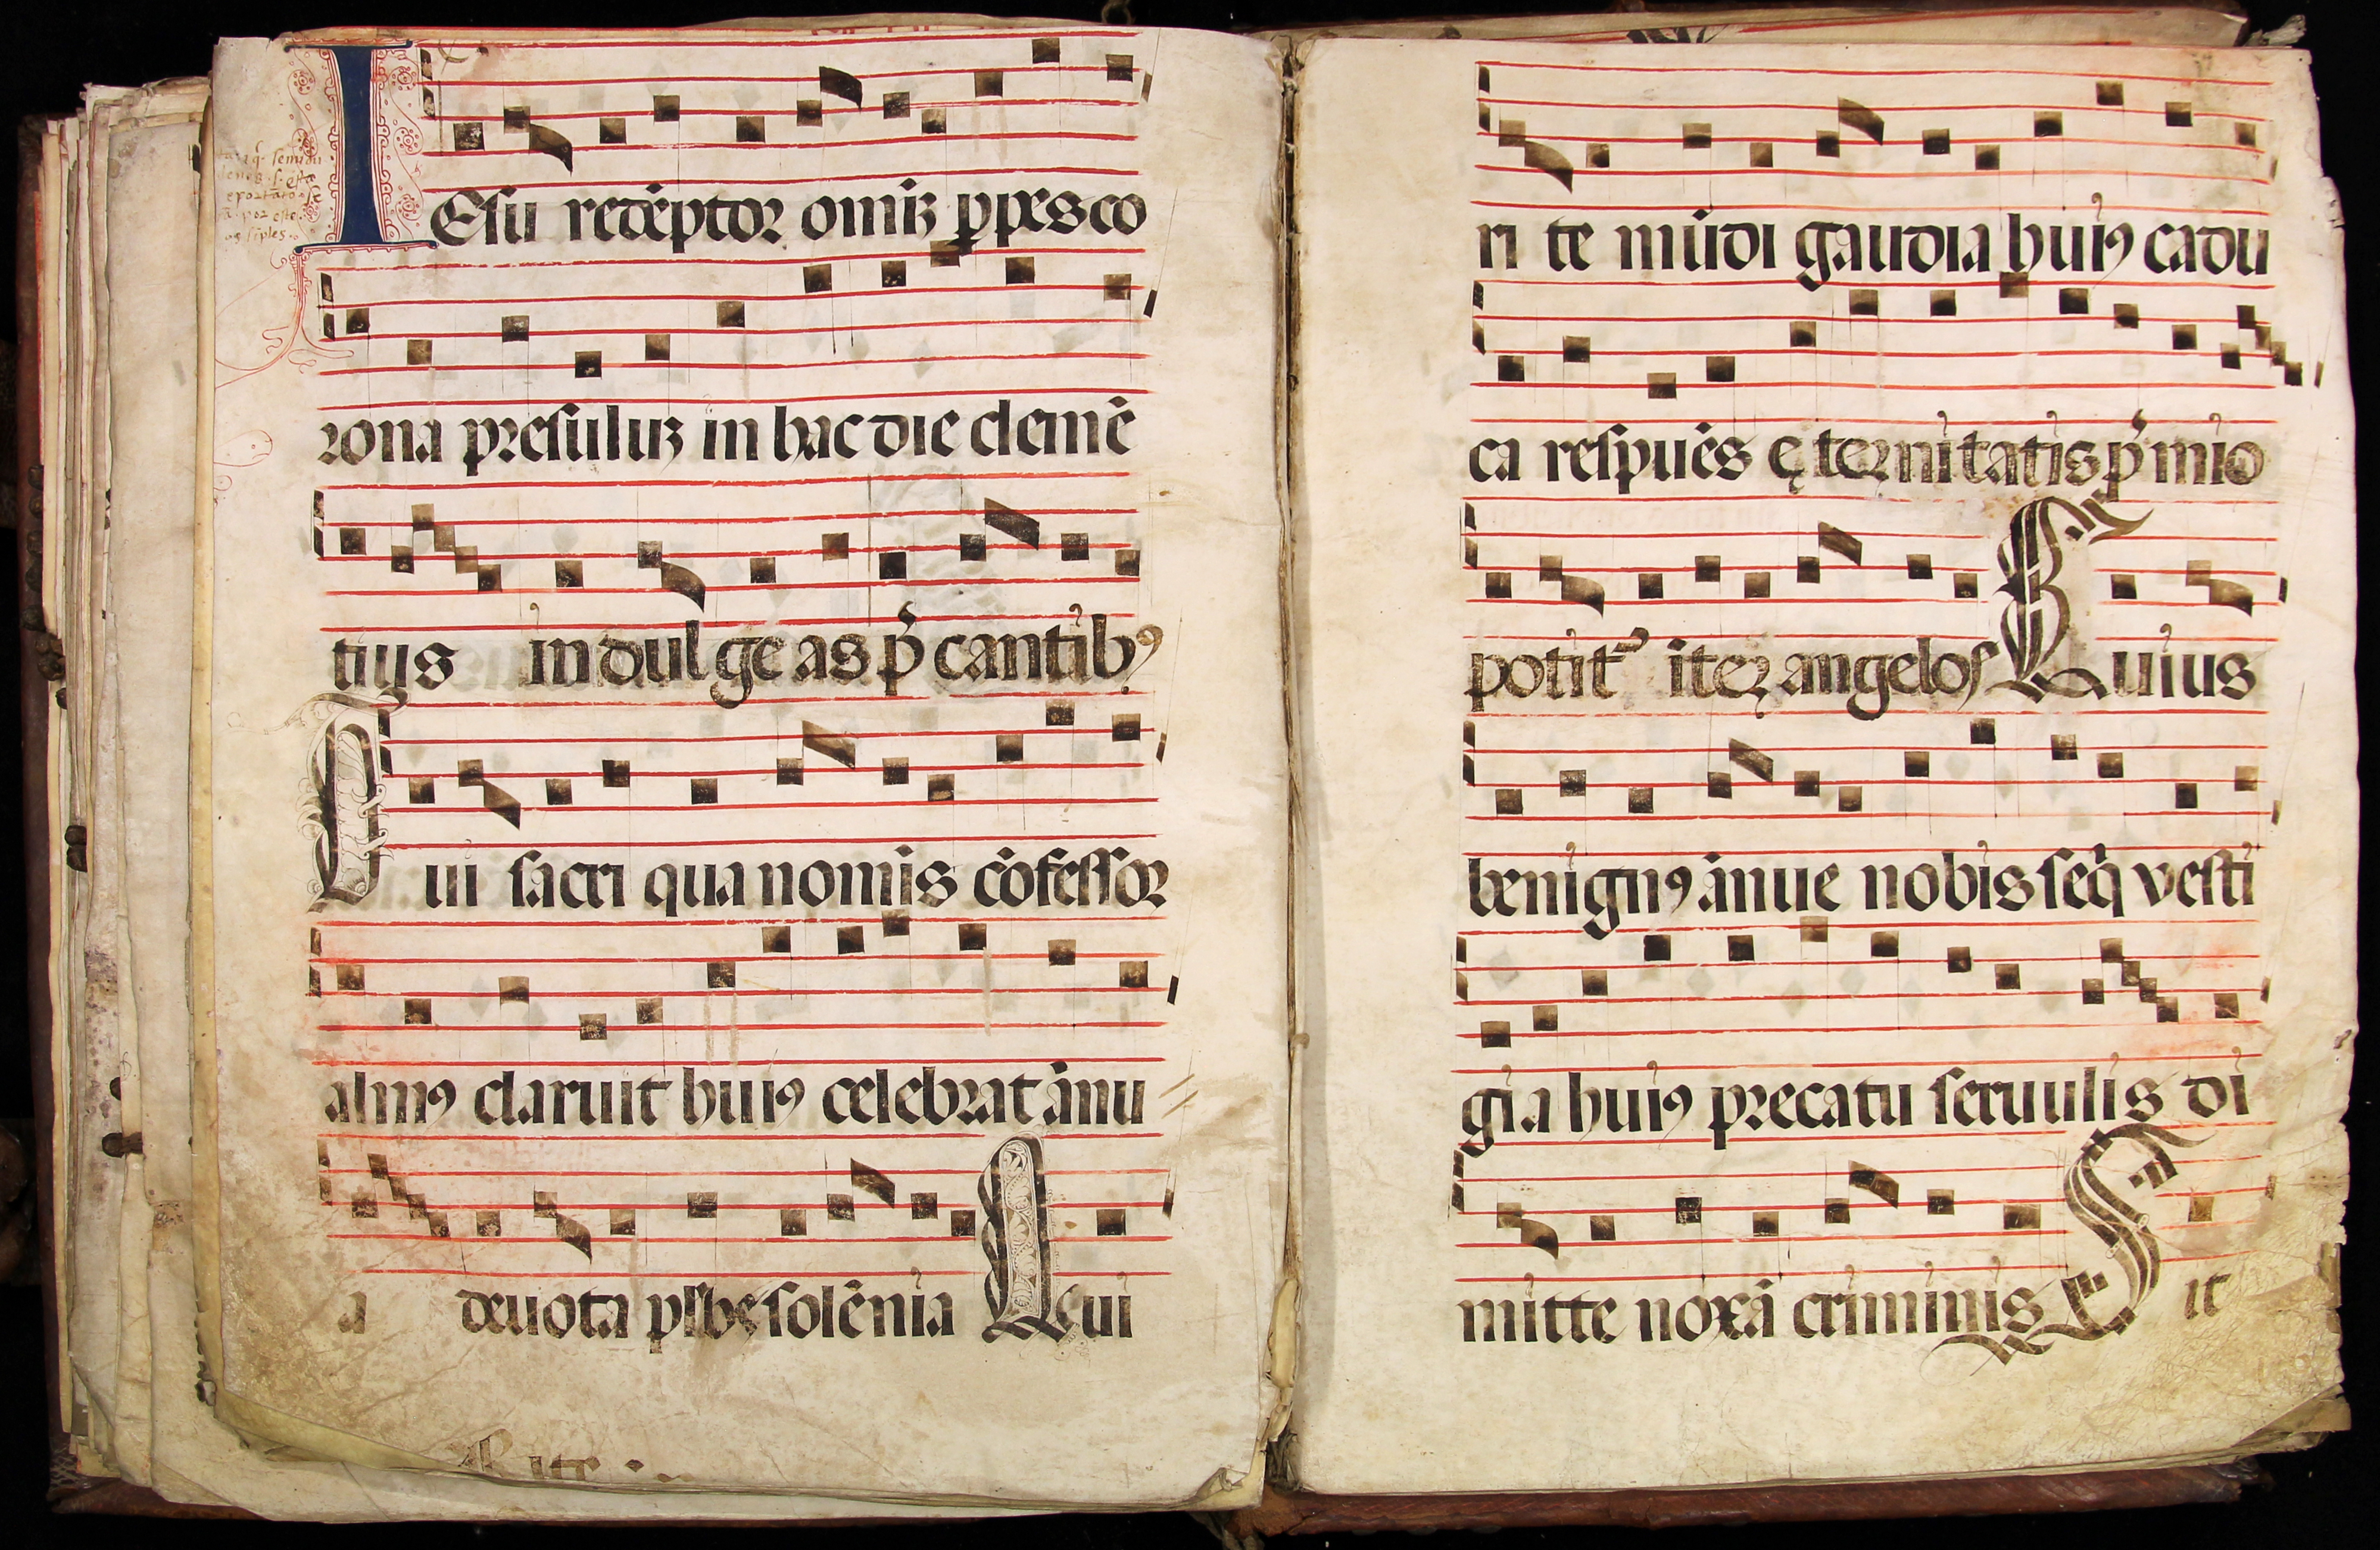 IEsu redēptor omīȝ ꝑpes co
rona presuluȝ in hac die clemē
tius indulgeas p̄cantibꝰ
Cui sacri qua nominis cōfessor
almꝰ claruit huiꝰ celebrat ānu
a deuota plebs solēnia Qui
ri te mūdi gaudia huiꝰ cadu
ca respuēs ęternitatis p̄mio
potitᷣ iter angelos Cuius
benignꝰ ānue nobis seq̄ vesti
gia huiꝰ precatu seruulis di
mitte noxā criminis Sit